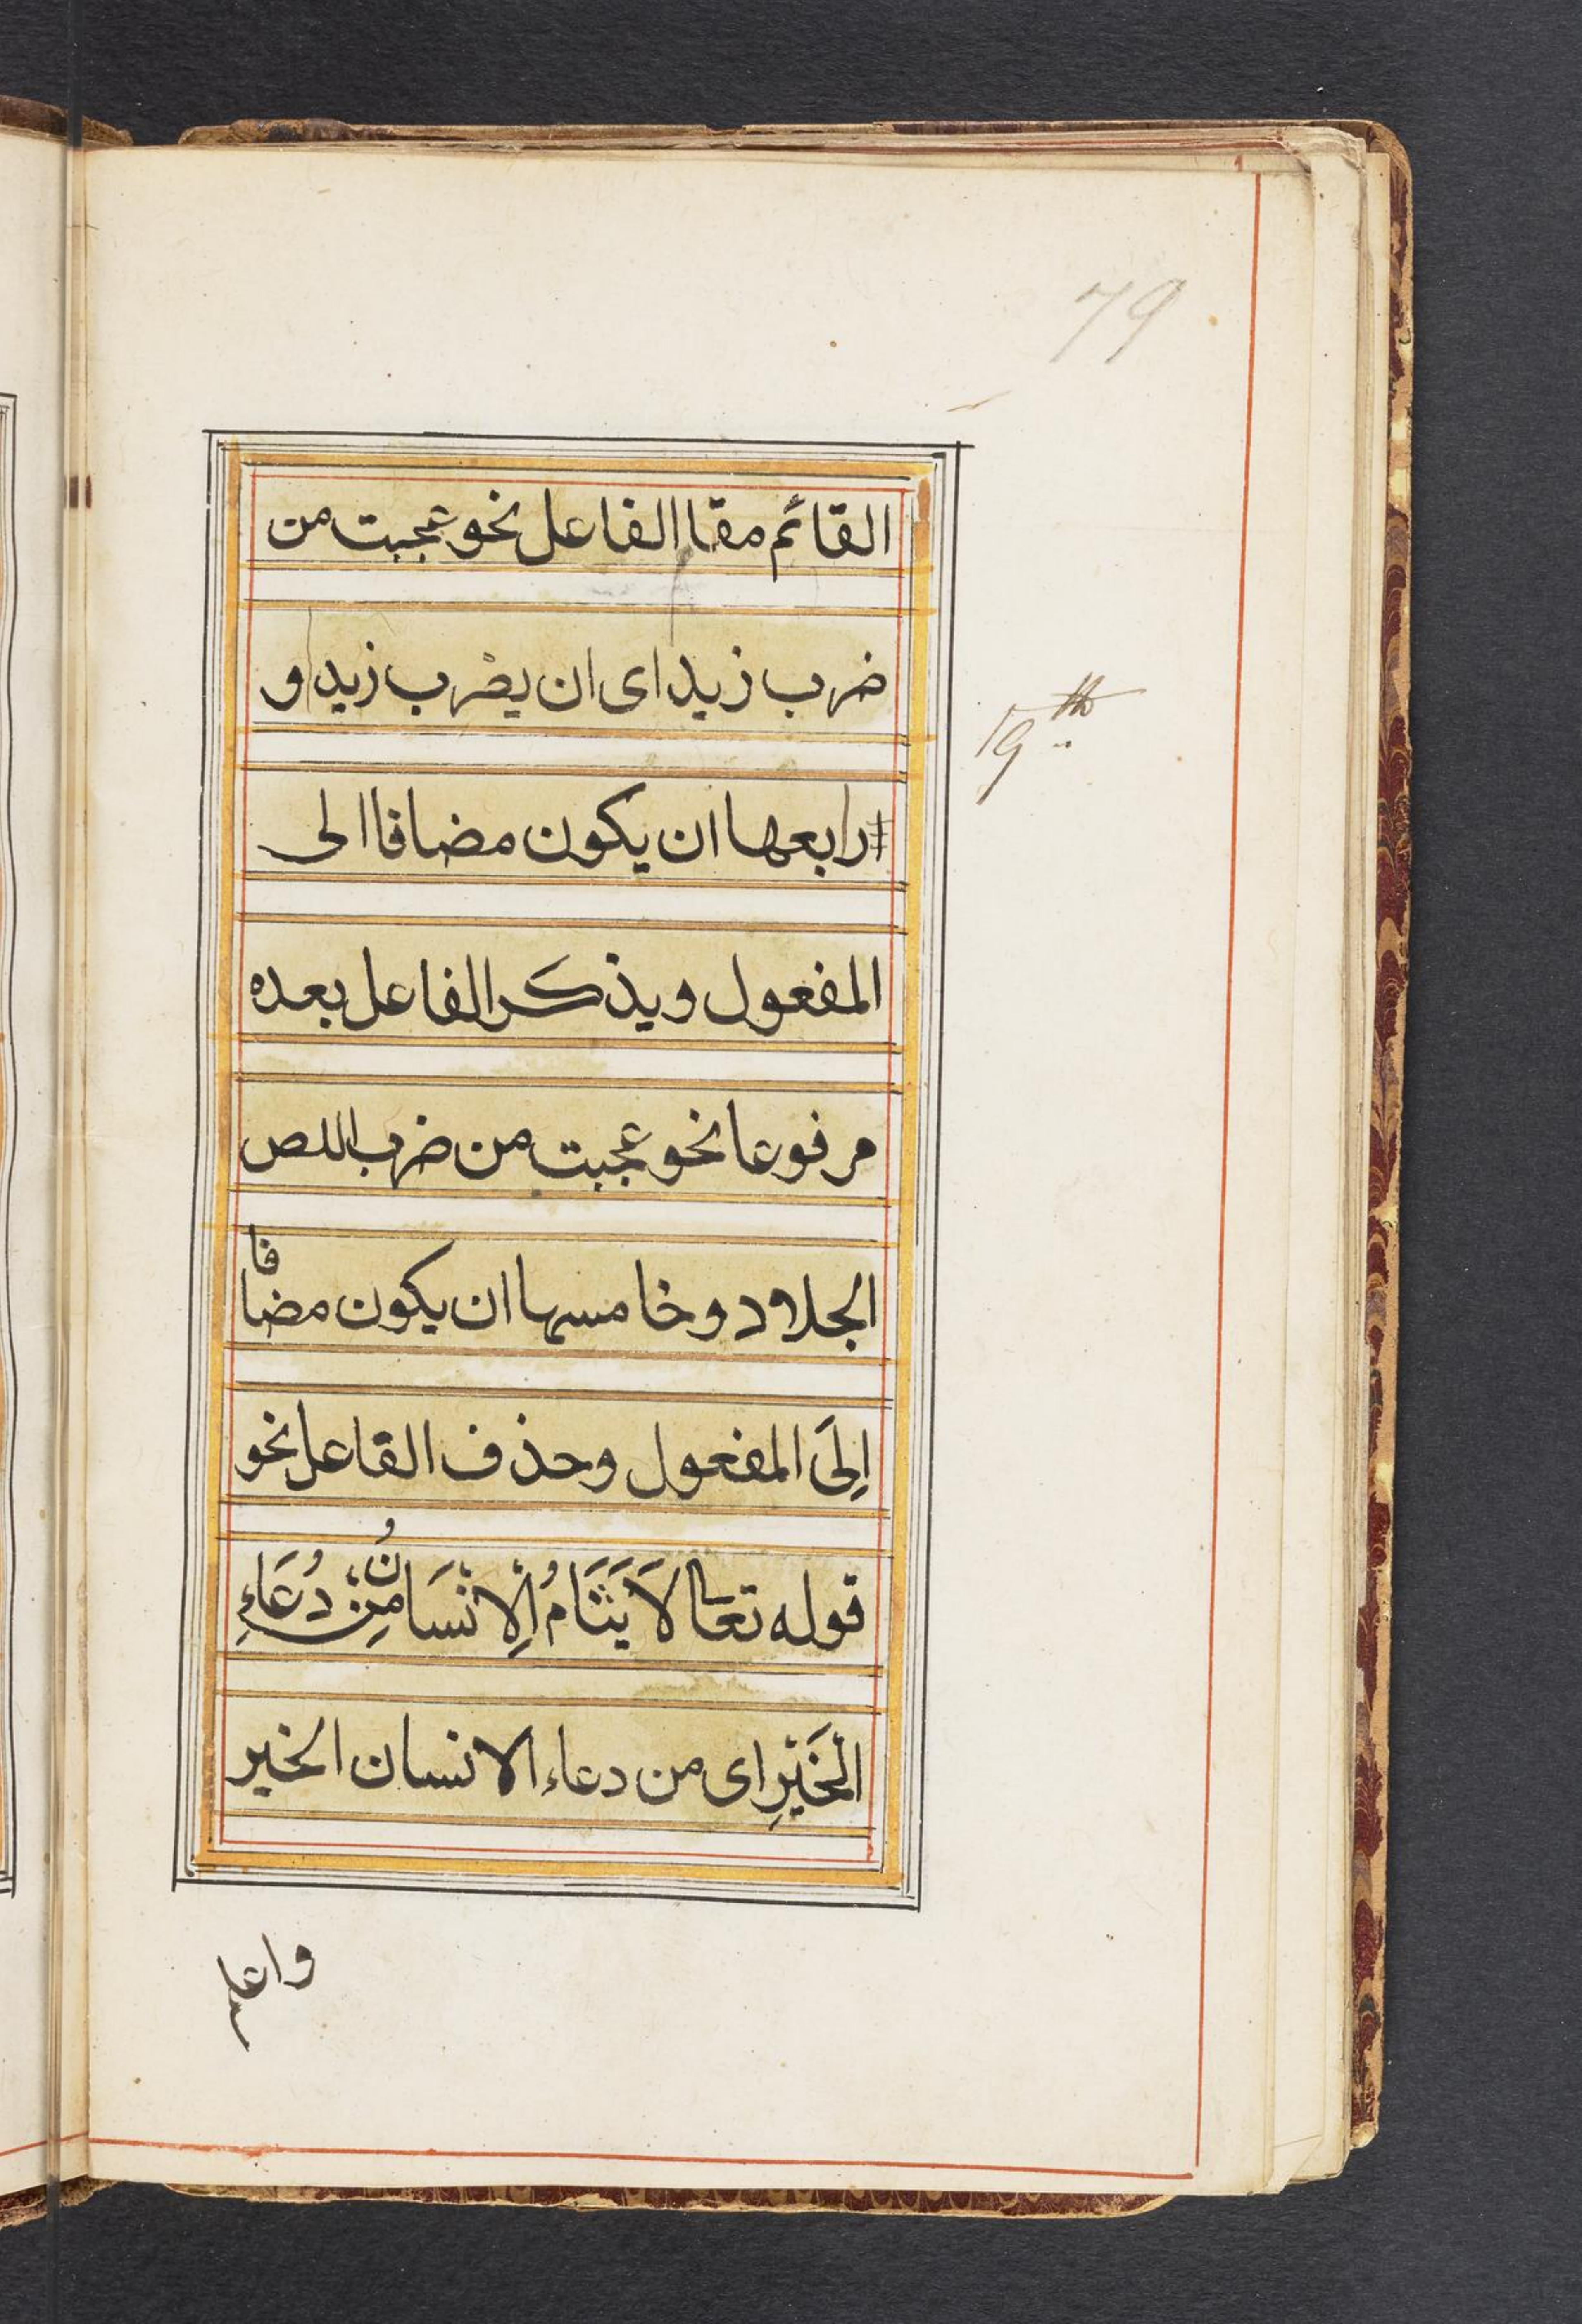 79
القائم مقاالفاعل نحو عجبت من
ضرب زيد اى ان يضرب زيد او
19th
رابعها ان يكون مضافا الى
المفعول ويذكر الفاعل بعده
مرفوعا نحو عجبت من ضرب اللص
الجلاد وخامسها ان يكون مضافا
اِلَى المفعول وحذف القاعل نحو
قوله تعالى لاَ يَثَنَامُ اِلْاِنْسَانُ مِنْ دُعَاءِ
الْخَيْرِ اى من دعاء الانسان الخير